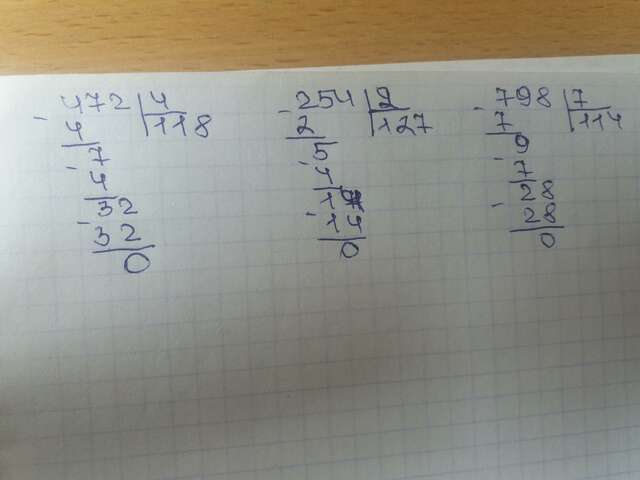 - 472 | 4
4 | 118
- 7
4
- 32
32
0
- 254 | 2
2 | 127
- 5
4
- 14
14
0
- 798 | 7
7 | 114
- 9
7
- 28
28
0